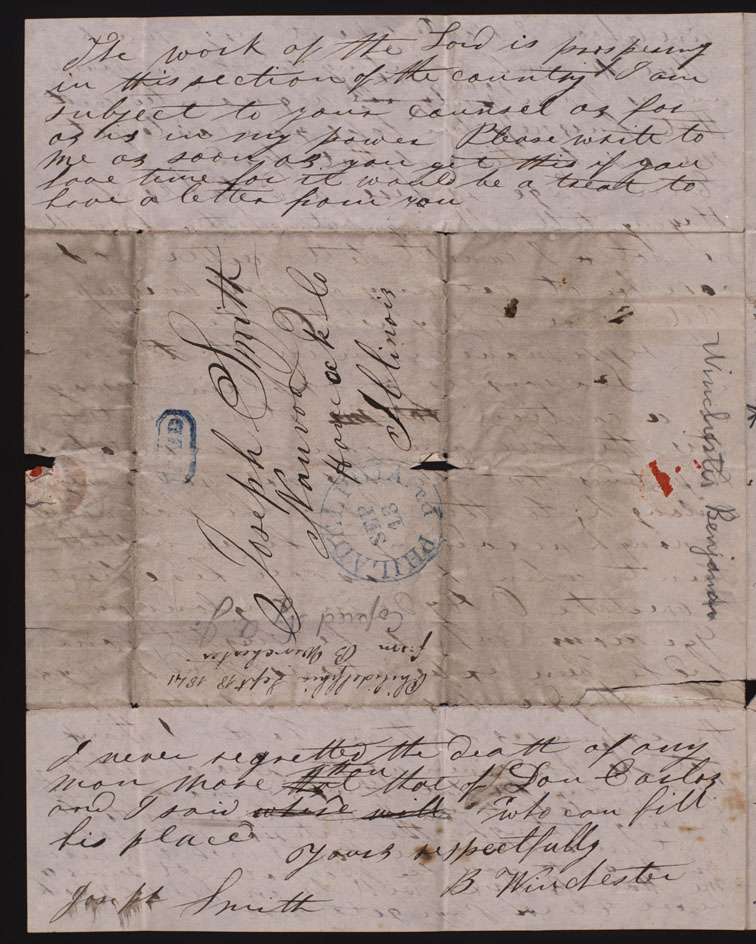 The work of the Lord is prospering
in this section of the country I am
subject to your counsel as far
as is in my power Please write to
me as soon as you get this if you
have time for it would be a treat to
have a letter from you
Joseph Smith
Nauvoo
Hancock Co
Illinois
PAID
PHILADELPHIA Pa
SEP
18
Winchester Benjamin
Copied
Philidelphia Sept 18 1841
from B Winchester
I never regretted the death of any
man more than that of Don Carlos
and I said where will who can fill
his place
Yours respectfully
B Winchester
Joseph Smith